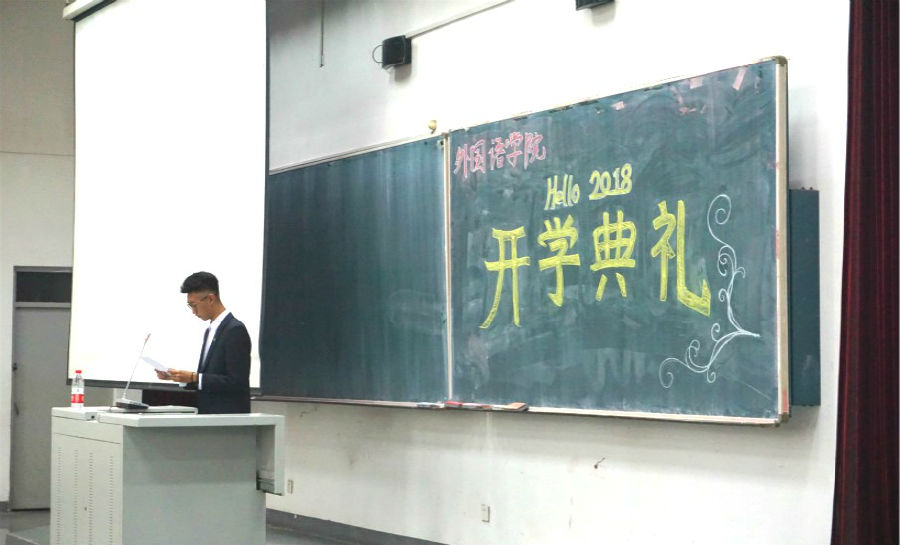 外国语学院
Hello 2018
开学典礼